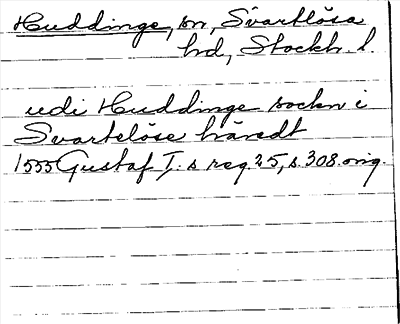 Huddinge, sn, Svartlösa
hd, Stockh. l.
udi Huddinge sockn i
Svartelöse häredt
1555 Gustaf I:s reg. 25, s. 308. orig.